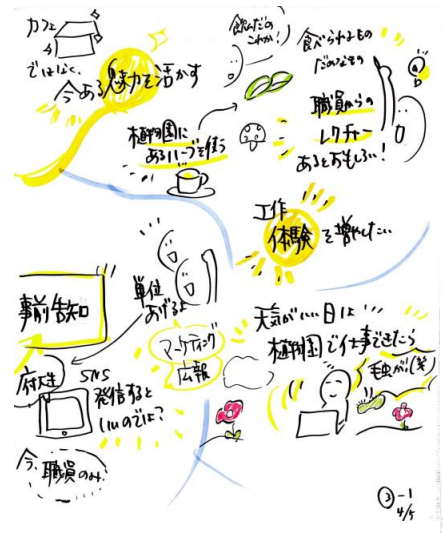 カフェ
ではなく、
今ある魅力を活かす
飲んだの
これか!
食べられるもの
だめなもの
職員からの
レクチャー
あるとおもしろい!
植物園に
あるハーブを使う
工作
体験を増やしたい
事前告知
単位
あげるよ
マーケティング
広報
府大生
SNS
発信すると
いいのでは?
今、職員のみ
天気がいい日は
植物園で仕事できたら
毛虫が(笑)
③-1
4/5